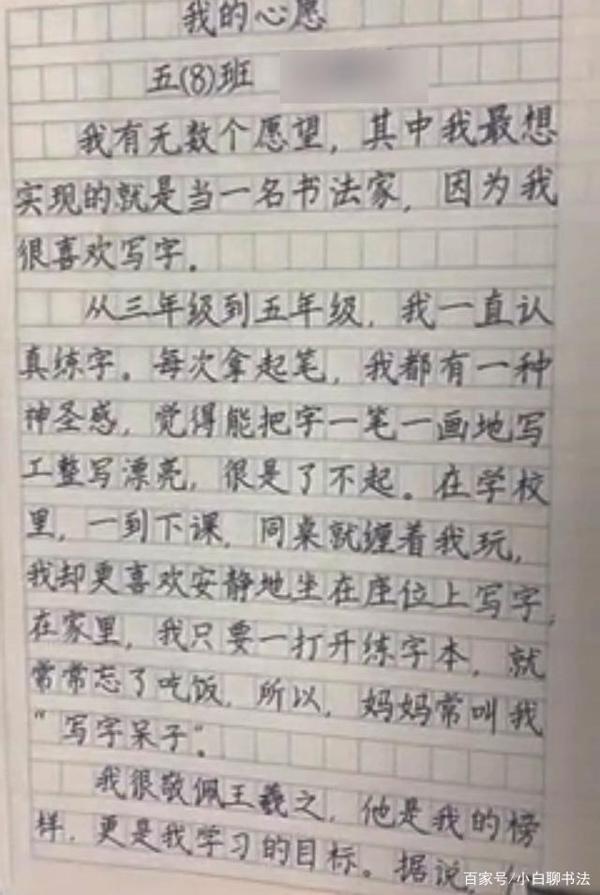 我的心愿
五(8)班
我有无数个愿望，其中我最想
实现的就是当一名书法家，因为我
很喜欢写字。
从三年级到五年级，我一直认
真练字。每次拿起笔，我都有一种
神圣感，觉得能把字一笔一画地写
工整写漂亮，很是了不起。在学校
里，一到下课，同桌就缠着我玩，
我却更喜欢安静地坐在座位上写字，
在家里，我只要一打开练字本，就
常常忘了吃饭，所以，妈妈常叫我
“写字呆子”。
我很敬佩王羲之，他是我的榜
样，更是我学习的目标。据说，
百家号/小白聊书法